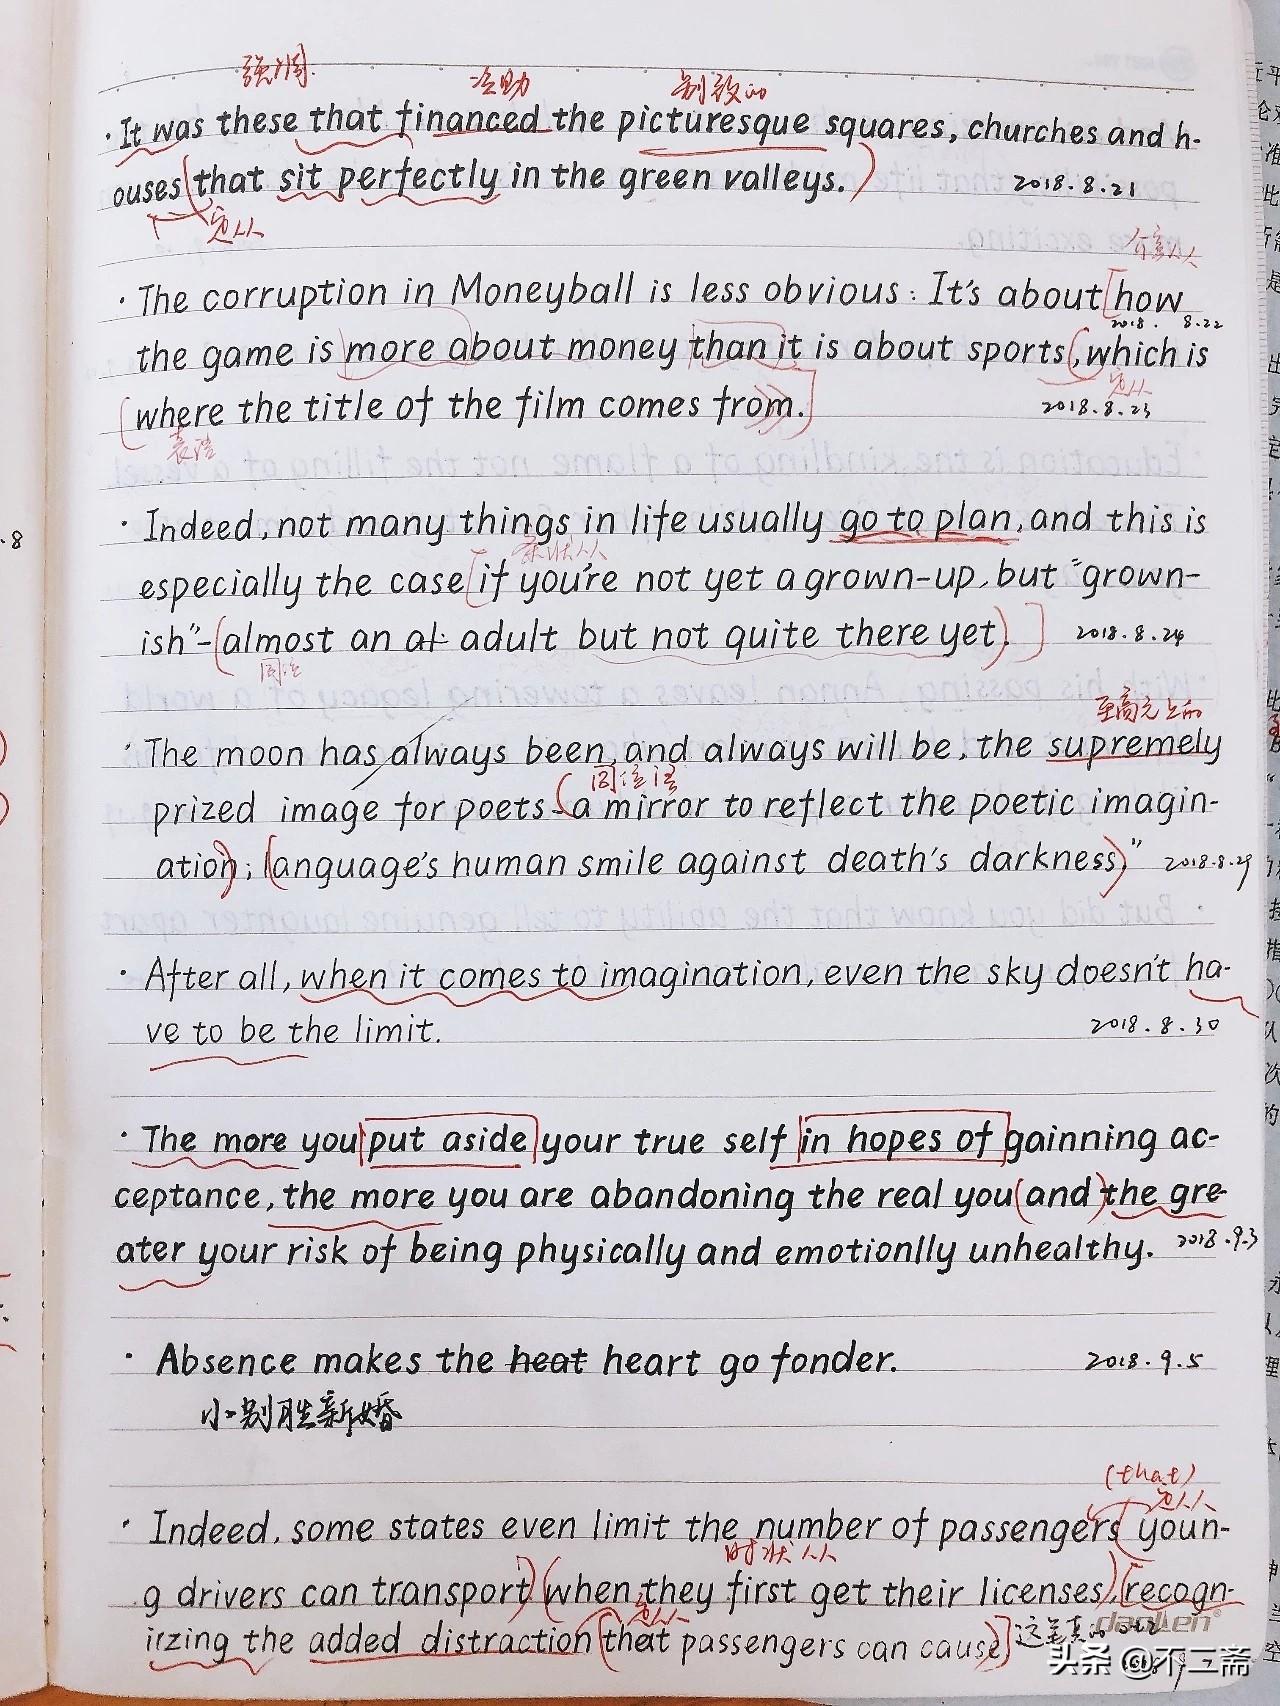 强调 资助 别致的
· It was these that financed the picturesque squares, churches and h-
ouses (that sit perfectly in the green valleys.) 2018.8.21
定从
介宾从
· The corruption in Moneyball is less obvious: It's about [how
2018. 8.22
the game is more about money than it is about sports (, which is
定从
[where the title of the film comes from.)] 2018.8.23
表语
· Indeed, not many things in life usually go to plan, and this is
条状从
especially the case [if you're not yet a grown-up, but "grown-
ish" - (almost an at adult but not quite there yet).] 2018.8.24
同位
至高无上的
· The moon has always been, and always will be, the supremely
同位语
prized image for poets - (a mirror to reflect the poetic imagin-
ation); (language's human smile against death's darkness)." 2018.8.29
· After all, when it comes to imagination, even the sky doesn't ha-
ve to be the limit. 2018.8.30
· The more you put aside your true self in hopes of gainning ac-
ceptance, the more you are abandoning the real you (and) the gre-
ater your risk of being physically and emotionlly unhealthy. 2018.9.3
· Absence makes the heat heart go fonder. 2018.9.5
小别胜新婚
(that)
定从
· Indeed, some states even limit the number of passengers (youn-
时状从
g drivers can transport) (when they first get their licenses), [recogn-
定从
izing the added distraction (that passengers can cause)]
头条 @不二斋
.8